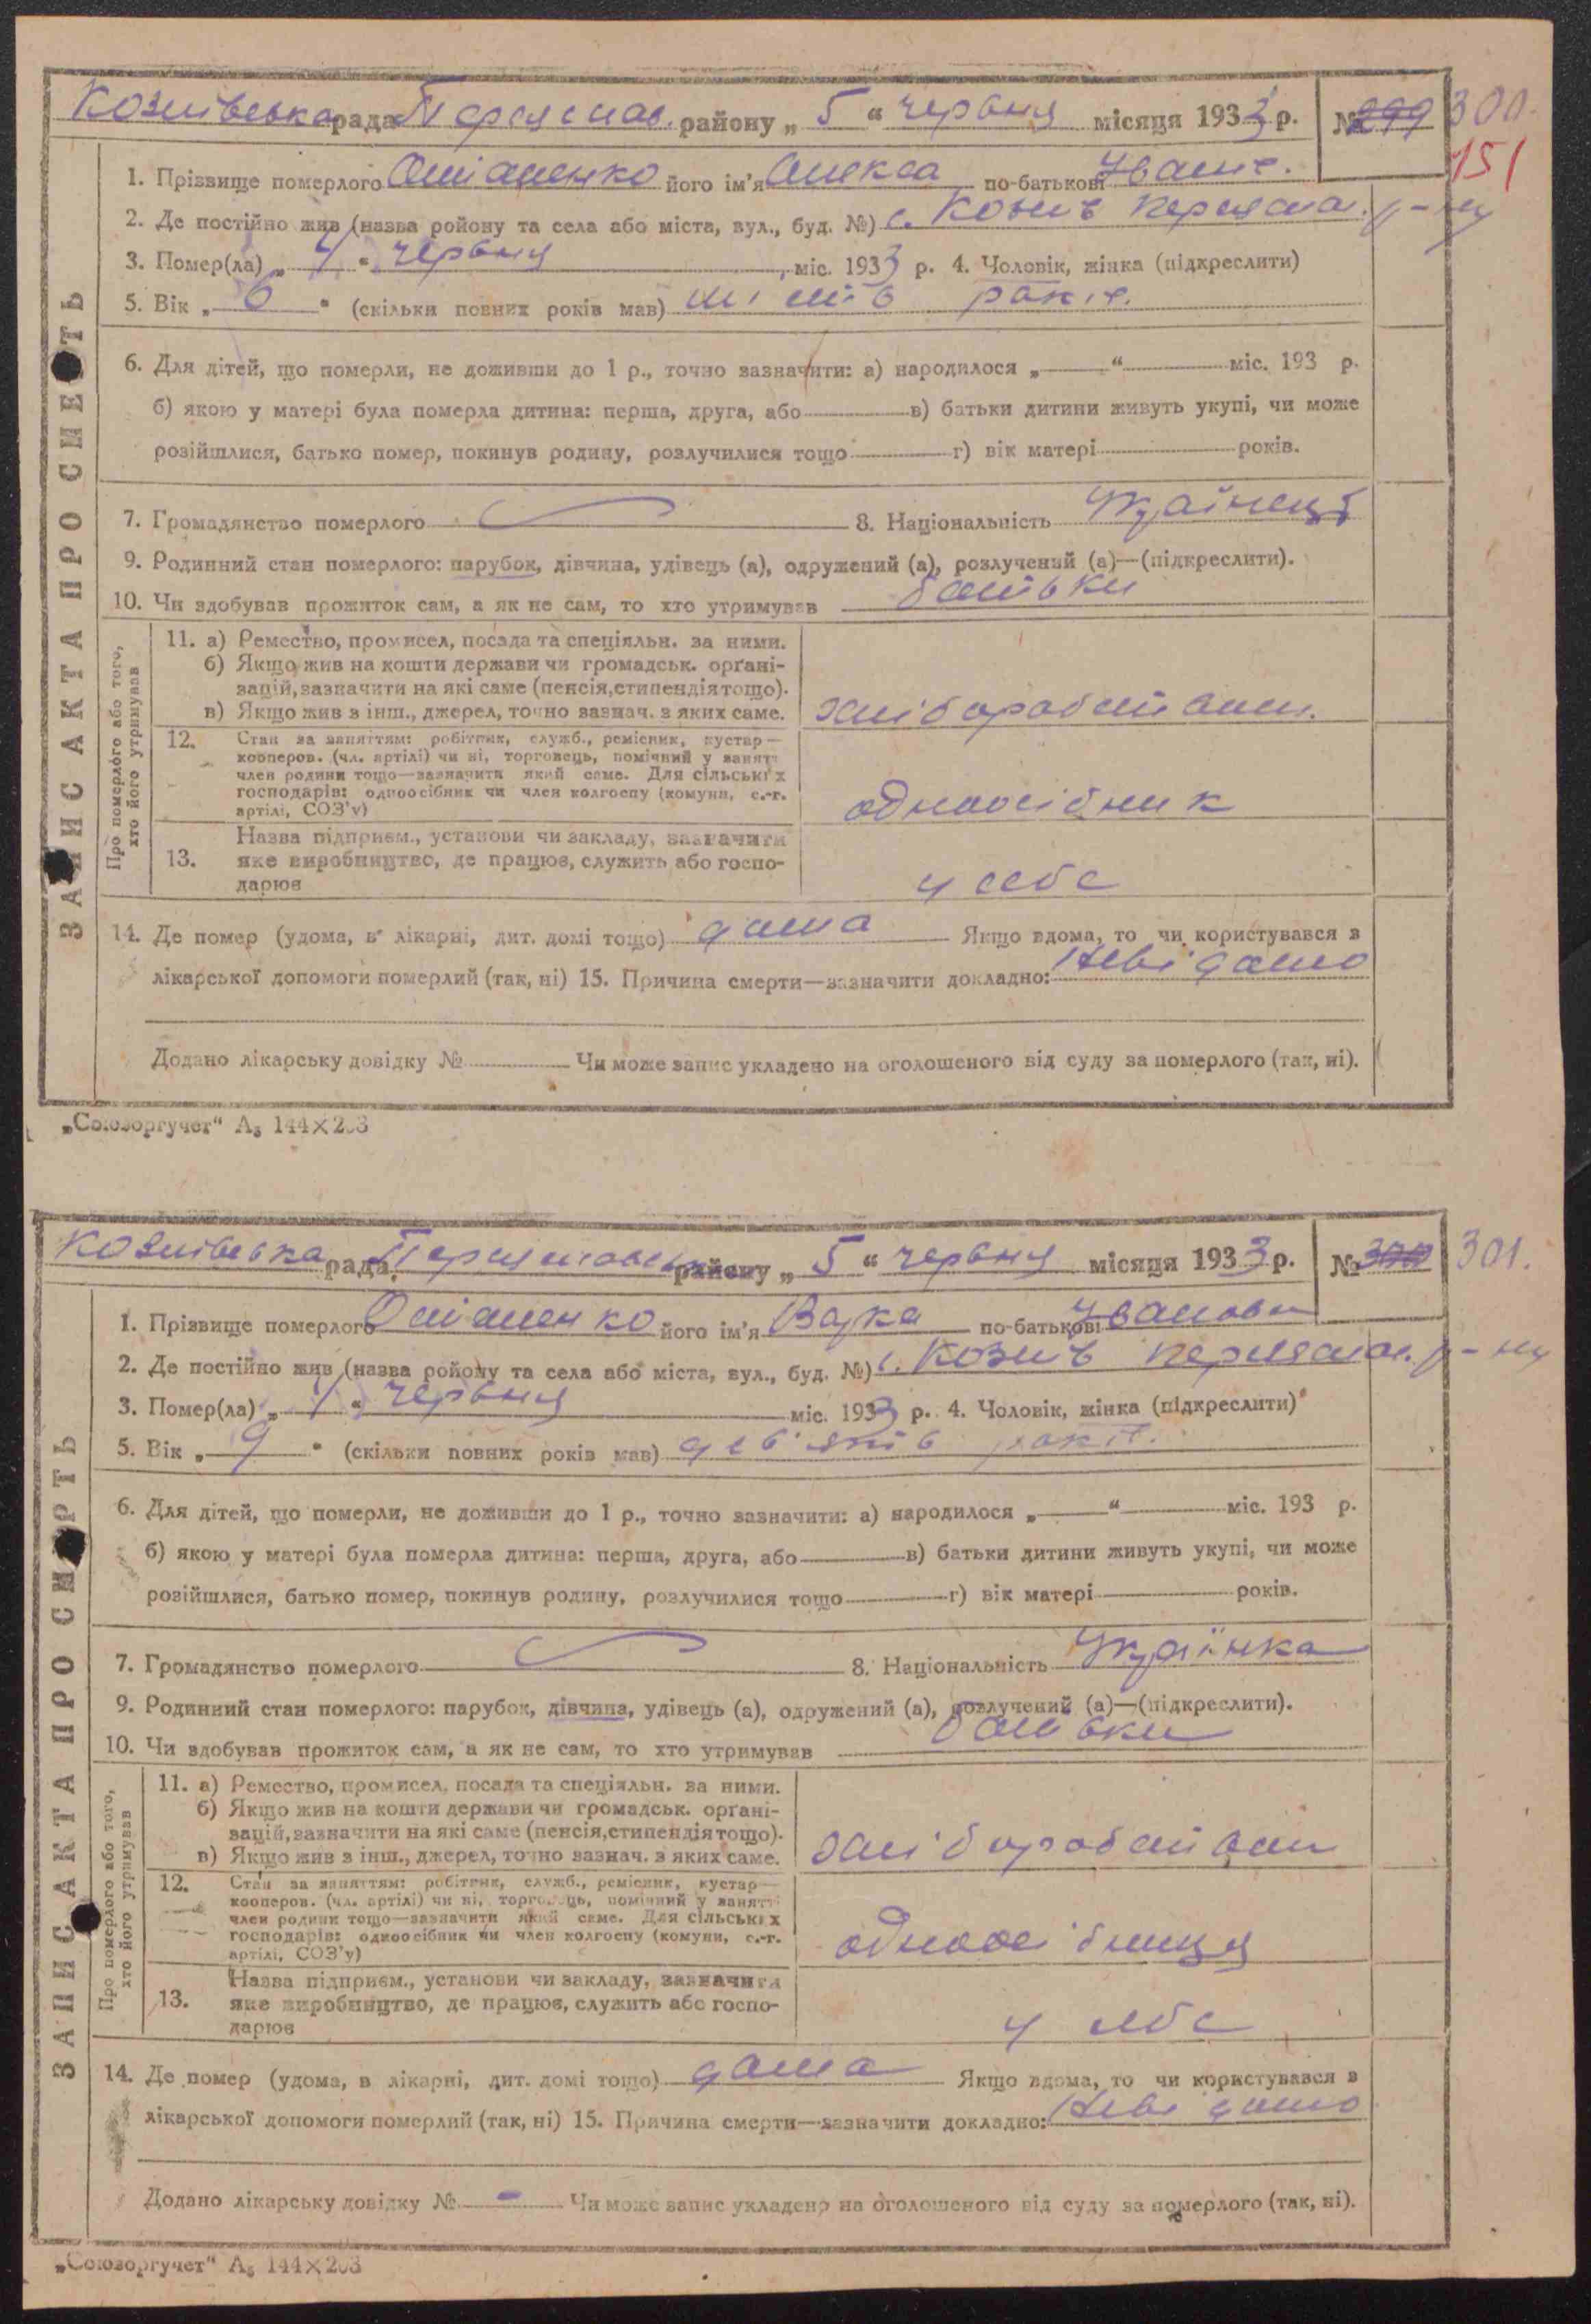 Козлівська рада Переяслав. району „ 5 “ червня місяця 1933 р. № 299 300.
151
1. Прізвище померлого його ім'я Олекса по-батькові Іване.
2. Де постійно жив (назва ройону та села або міста, вул., буд. №) с. Козлів Переяслав. р-ну
3. Помер(ла) „ 4 “ червня міс. 1933 р. 4. Чоловік, жінка (підкреслити)
5. Вік „ 6 “ (скільки повних років мав) шість років.
6. Для дітей, що померли, не доживши до 1 р., точно зазначити: а) народилося „ “ міс. 193 р.
б) якою у матері була померла дитина: перша, друга, або в) батьки дитини живуть укупі, чи може
розійшлися, батько помер, покинув родину, розлучилися тощо г) вік матері років.
7. Громадянство померлого 8. Національність Українець
9. Родинний стан померлого: парубок, дівчина, удівець (а), одружений (а), розлучений (а)—(підкреслити).
10. Чи здобував прожиток сам, а як не сам, то хто утримував батьки
ЗАПИС АКТА ПРО СМЕРТЬ
Про померлого або того,
хто його утримував
11. а) Ремество, промисел, посада та спеціяльн. за ними.
б) Якщо жив на кошти держави чи громадськ. органі-
зацій, зазначити на які саме (пенсія, стипендія тощо).
в) Якщо жив з інш., джерел, точно зазнач. з яких саме. хліборобство.
12. Стан за заняттям: робітник, служб., ремісник, кустар—
кооперов. (чл. артілі) чи ні, торговець, помічний у занятт
член родини тощо—зазначити який саме. Для сільських
господарів: одноосібник чи член колгоспу (комуни, с.-г.
артілі, СОЗ'у) одноосібник
Назва підприєм., установи чи закладу, зазначити
13. яке виробництво, де працює, служить або госпо-
дарює у себе
14. Де помер (удома, в лікарні, дит. домі тощо) дома Якщо вдома, то чи користувався з
лікарської допомоги померлий (так, ні) 15. Причина смерти—зазначити докладно: Невідомо
Додано лікарську довідку № Чи може запис укладено на оголошеного від суду за померлого (так, ні).
„Союзоргучет“ А₅ 144×203
Козлівська рада Переяславськ району „ 5 “ червня місяця 1933 р. № 300 301.
1. Прізвище померлого його ім'я Варка по-батькові Іванова
2. Де постійно жив (назва ройону та села або міста, вул., буд. №) с. Козлів Переяслав. р-ну
3. Помер(ла) „ 4 “ червня міс. 1933 р. 4. Чоловік, жінка (підкреслити)
5. Вік „ 9 “ (скільки повних років мав) дев'ять років.
6. Для дітей, що померли, не доживши до 1 р., точно зазначити: а) народилося „ “ міс. 193 р.
б) якою у матері була померла дитина: перша, друга, або в) батьки дитини живуть укупі, чи може
розійшлися, батько помер, покинув родину, розлучилися тощо г) вік матері років.
7. Громадянство померлого 8. Національність Українка
9. Родинний стан померлого: парубок, дівчина, удівець (а), одружений (а), розлучений (а)—(підкреслити).
10. Чи здобував прожиток сам, а як не сам, то хто утримував батьки
ЗАПИС АКТА ПРО СМЕРТЬ
Про померлого або того,
хто його утримував
11. а) Ремество, промисел, посада та спеціяльн. за ними.
б) Якщо жив на кошти держави чи громадськ. органі-
зацій, зазначити на які саме (пенсія, стипендія тощо).
в) Якщо жив з інш., джерел, точно зазнач. з яких саме. хліборобство
12. Стан за заняттям: робітник, служб., ремісник, кустар—
кооперов. (чл. артілі) чи ні, торговець, помічний у занятті
член родини тощо—зазначити який саме. Для сільських
господарів: одноосібник чи член колгоспу (комуни, с.-г.
артілі, СОЗ'у) одноосібниця
Назва підприєм., установи чи закладу, зазначити
13. яке виробництво, де працює, служить або госпо-
дарює у себе
14. Де помер (удома, в лікарні, дит. домі тощо) дома Якщо вдома, то чи користувався з
лікарської допомоги померлий (так, ні) 15. Причина смерти—зазначити докладно: Невідомо
Додано лікарську довідку № - Чи може запис укладено на оголошеного від суду за померлого (так, ні).
„Союзоргучет“ А₅ 144×203